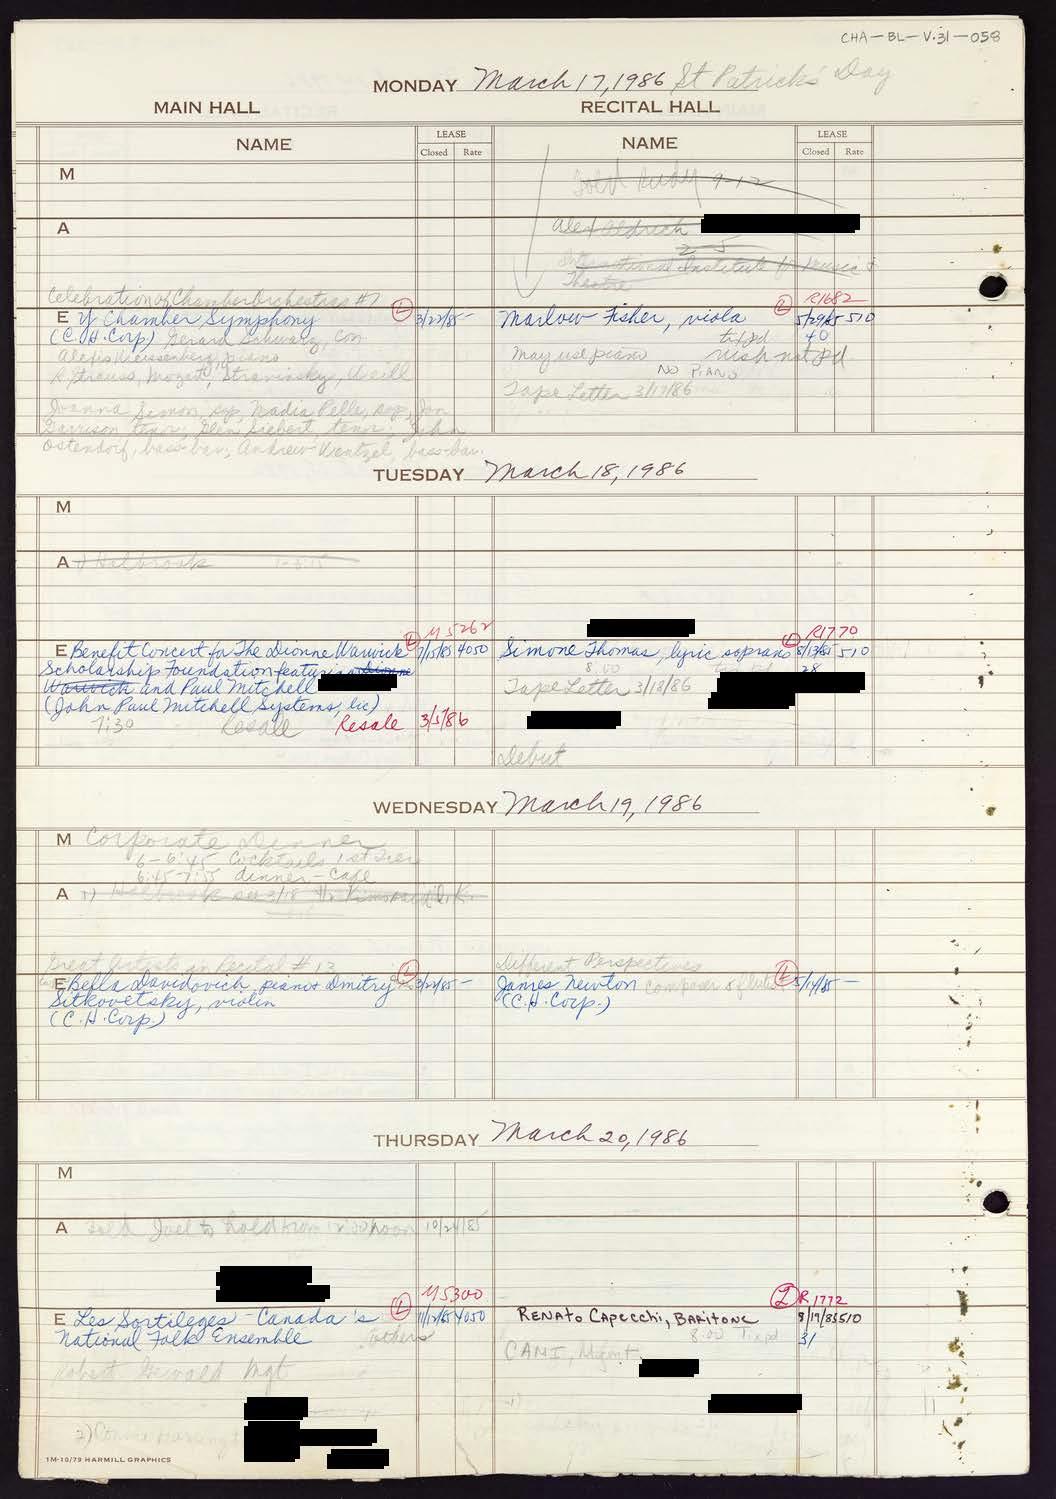 CHA-BL-V.31-058
MONDAY March 17, 1986 St Patrick's Day
MAIN HALL RECITAL HALL
NAME LEASE NAME LEASE
Closed Rate Closed Rate
M
Sold Rudy 9-12
A
Alex Aldrich
2-5
International Institute for Music &
Theatre
Celebration of Chamber Orchestras #7
R1682
E Y Chamber Symphony L 3/22/85 -
(C.H. Corp) Gerard Schwarz, con
Alexis Weissenberg, piano
R. Strauss, Mozart, Stravinsky, Weill
Joanna Simon, sop, Nadia Pelle, sop, Jon
Garrison, tenor; Glen Siebert, tenor; John
Ostendorf, bass-bar; Andrew Wentzel, bass-bar.
Marlow Fisher, viola L 5/29/85 510
tx pd 40
May use piano rush not pd
NO PIANO
Tape Letter 3/17/86
TUESDAY March 18, 1986
M
A 1) Holbrook
M5262
E Benefit Concert for The Dionne Warwick L 7/15/85 4050
Scholarship Foundation featuring Dionne
Warwick and Paul Mitchell
(John Paul Mitchell Systems, Inc)
7:30 Resale Resale 3/5/86
R1770
Simone Thomas, lyric soprano L 8/13/85 510
8:00 28
Tape Letter 3/18/86
Debut
WEDNESDAY March 19, 1986
M Corporate Dinner
6-6:45 Cocktails 1st Tier
6:45-7:55 dinner - Cafe
A 1) Holbrook see 3/18
Great Artists in Recital #13
E Bella Davidovich, piano & Dmitry L 3/22/85 -
Sitkovetsky, violin
(C.H. Corp.)
Different Perspectives
James Newton composer & flutist L 5/14/85 -
(C.H. Corp.)
THURSDAY March 20, 1986
M
A Sold Joel to hold from 12:00 noon 10/24/85
M5300
E Les Sortileges - Canada's L 11/12/85 4050
National Folk Ensemble
Robert Gewald Mgt
2) Connie
L R1772
RENATO CAPECCHI, BARITONE 8/19/85 510
8:00 Tx pd 31
CAMI, Mgmt
1M-10/79 HARMILL GRAPHICS